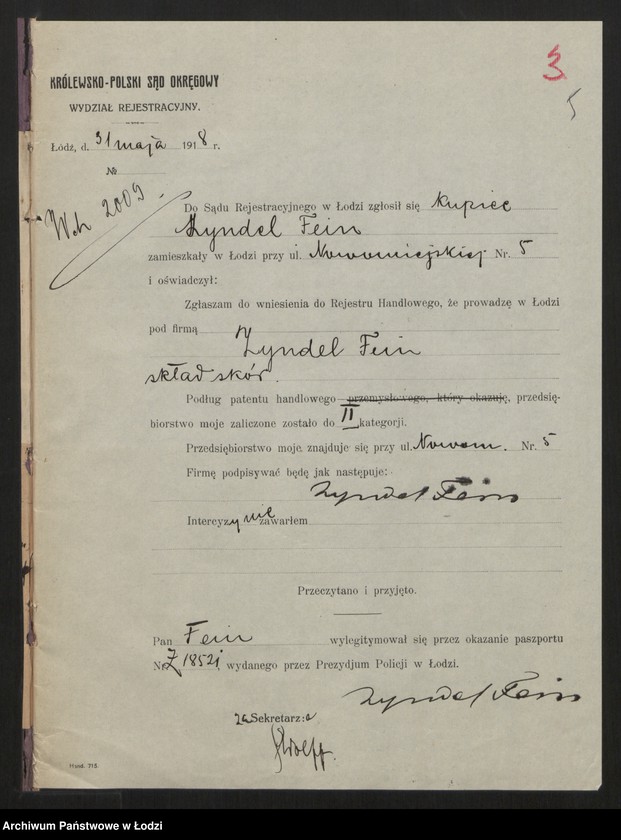 3
5
KRÓLEWSKO-POLSKI SĄD OKRĘGOWY
WYDZIAŁ REJESTRACYJNY.
Łódź, d. 31 maja 1918 r.
№
W.h 2009
Do Sądu Rejestracyjnego w Łodzi zgłosił się kupiec
Zyndel Fein
zamieszkały w Łodzi przy ul. Nowomiejskiej Nr. 5
i oświadczył:
Zgłaszam do wniesienia do Rejestru Handlowego, że prowadzę w Łodzi
pod firmą
Zyndel Fein
skład skór.
Podług patentu handlowego przemysłowego, który okazuję, przedsię-
biorstwo moje zaliczone zostało do II kategorji.
Przedsiębiorstwo moje znajduje się przy ul. Nowom. Nr. 5
Firmę podpisywać będę jak następuje:
Zyndel Fein
Intercyzy nie zawarłem
Przeczytano i przyjęto.
Pan Fein wylegitymował się przez okazanie paszportu
Nr. Z 18521, wydanego przez Prezydjum Policji w Łodzi.
Zyndel Fein
za Sekretarz:a
Hund. 715.
Archiwum Państwowe w Łodzi